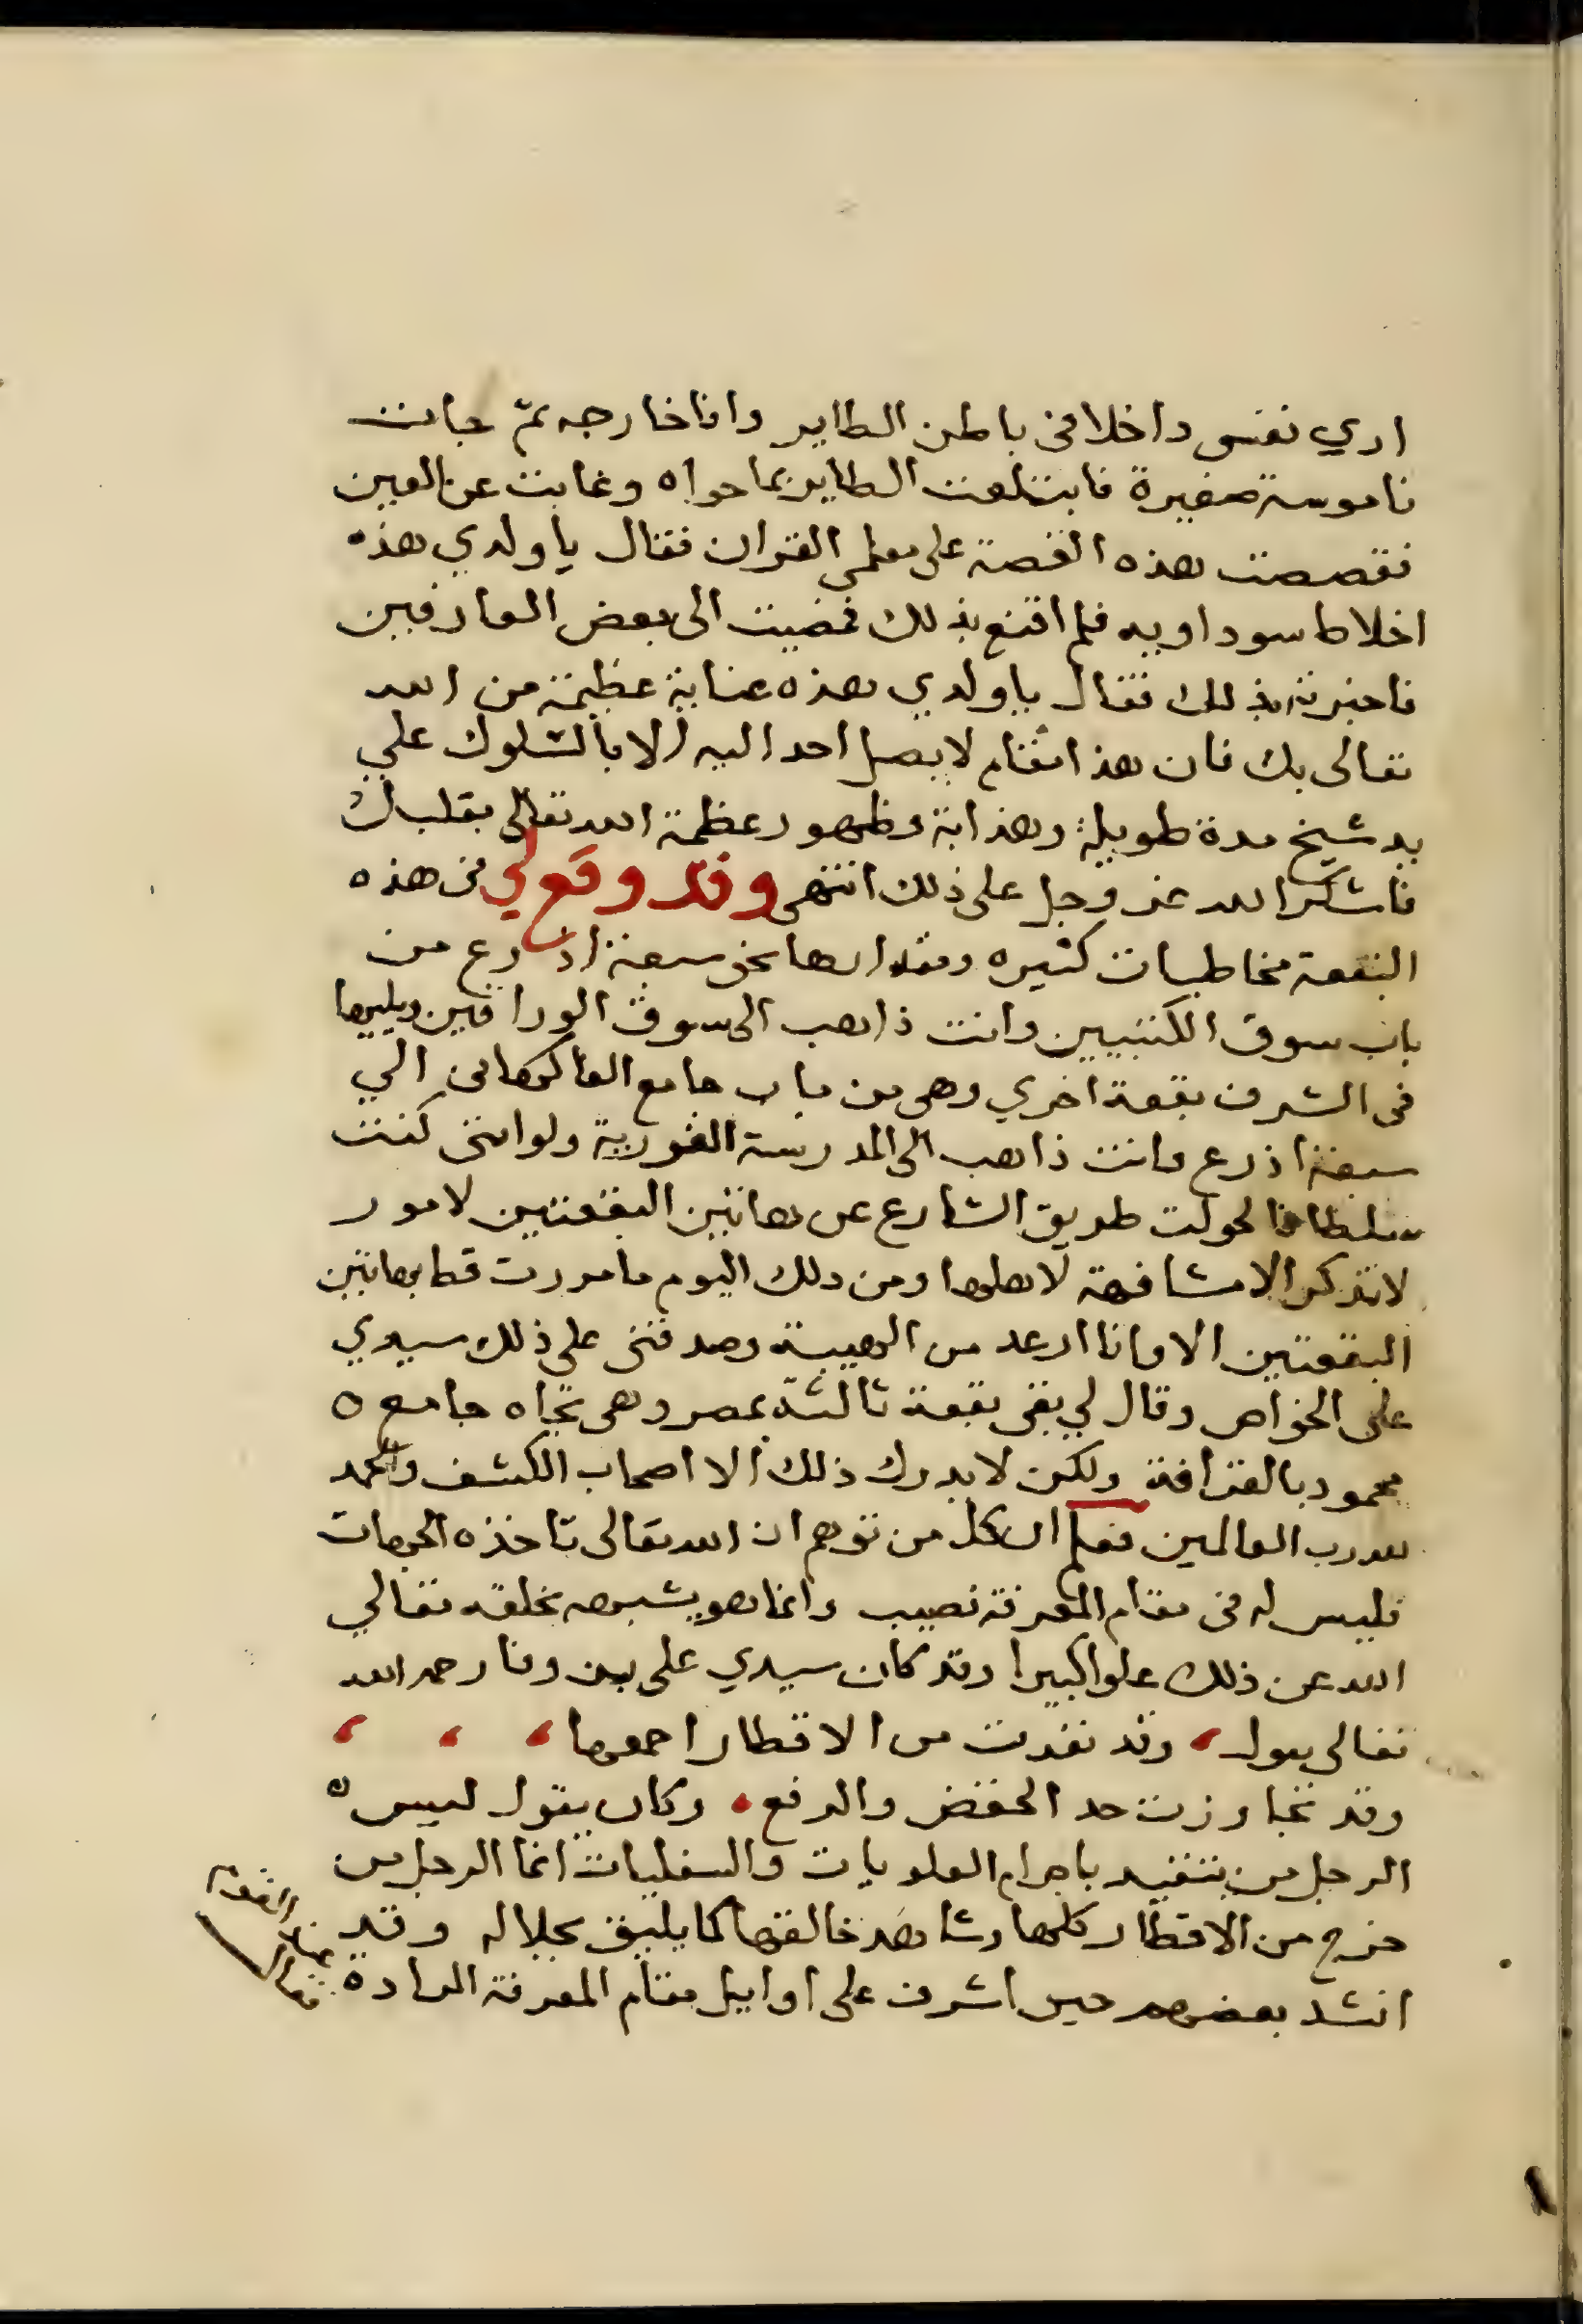 اري نفسي داخلا في باطن الطاير وانا خارجه ثم جات
ناموسة صغيرة فابتلعت الطاير بما حواه وغابت عن العين
فقصصت هذه القصة على معلمي القران فقال يا ولدي هذه
اخلاط سوداويه فلم اقنع بذلك فمضيت الى بعض العارفين
فاخبرته بذلك فقال يا ولدي هذه عناية عظيمة من الله
تعالى بك فان هذا المقام لا يصل احد اليه الا بالسلوك علي
يد شيخ مدة طويلة وهذا اية وظهور عظمة الله تعالى بقلبك
فاشكر الله عز وجل على ذلك انتهى وقد وقع لي في هذه
البقعة مخاطبات كثيره ومقدارها نحو سبعة اذرع من
باب سوق الكتبيين وانت ذاهب الى سوق الوراقين ويليها
في الشرف بقعة اخري وهي من باب جامع الفاكهاني الي
سبعة اذرع وانت ذاهب الى المدرسة الغورية ولو انني كنت
سلطانا لحولت طريق الشارع عن هاتين البقعتين لامور
لا تذكر الا مشافهة لاهلها ومن ذلك اليوم ما مررت قط بهاتين
البقعتين الا وانا ارعد من الهيبة وصدقني على ذلك سيدي
على الخواص وقال لي بقي بقعة ثالثة بمصر وهي تجاه جامع
محمود بالقرافة ولكن لا يدرك ذلك الا اصحاب الكشف والحمد
لله رب العالمين فعلم ان كل من توهم ان الله تعالى تاخذه الجهات
فليس له في مقام المعرفة نصيب وانما هو يشبهه بخلقه تعالي
الله عن ذلك علوا كبيرا وقد كان سيدي على بن وفا رحمه الله
تعالى يقول، وقد نفذت من الاقطار اجمعها، ، ،
وقد تجاوزت حد الخفض والرفع، وكان يقول ليس
الرجل من يتقيد باجرام العلويات والسفليات انما الرجل من
خرج من الاقطار كلها وشاهد خالقها كما يليق بجلاله وقد
انشد بعضهم حين اشرف على اوايل مقام المعرفة المرادة
عند القوم
فقال